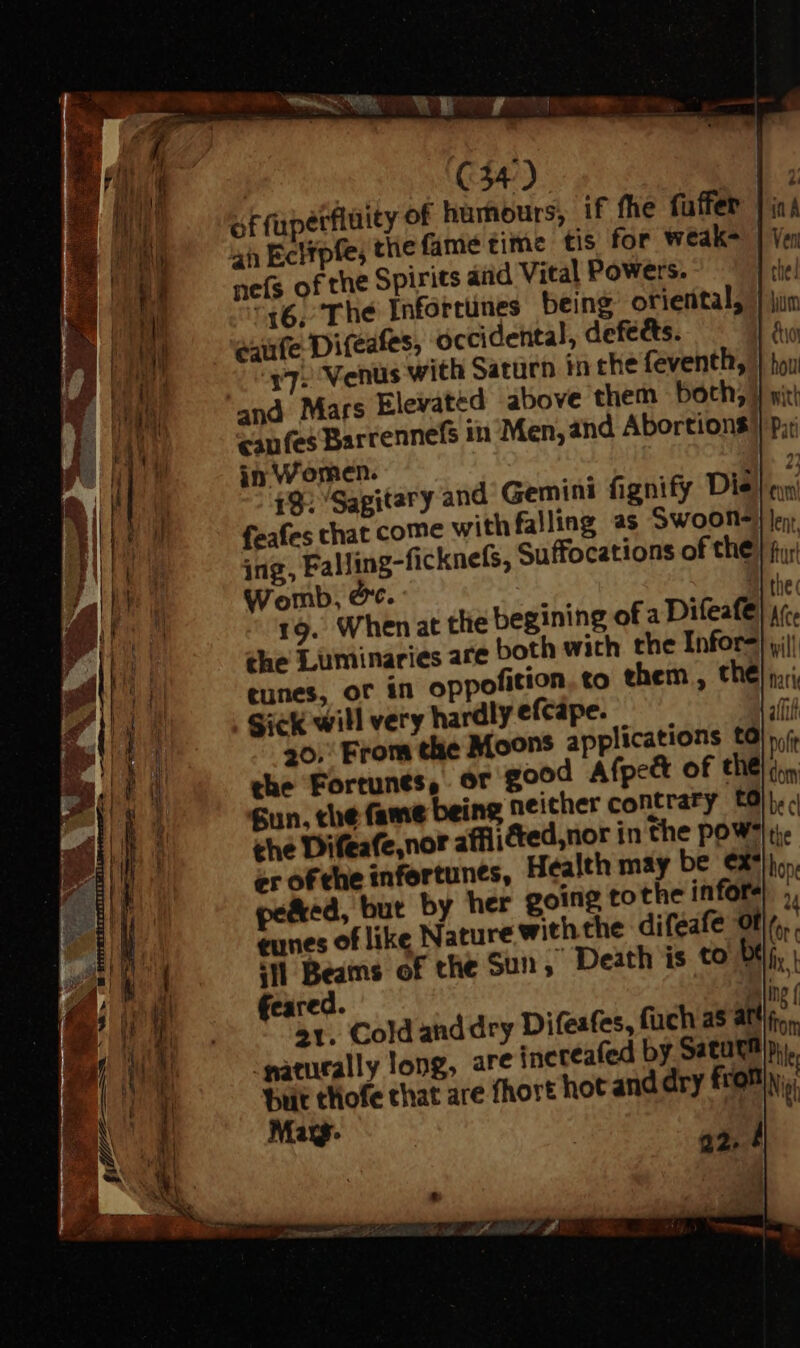 (34)
of ſuperfluity of humours, if ſhe ſuffer
an Eclipſe, the ſame time tis for weak-
neſs of the Spirits and Vital Powers.
16. The Infortunes being oriental,
cauſe Diſeaſes, occidental, defects.
17. Venus with Saturn in the ſeventh,
and Mars Elevated above them both,
cauſes Barrenneſs in Men, and Abortions
in Women.
18. Sagitary and Gemini ſignify Diſ-
feaſes that come with falling as Swoon-
ing, Falling-ſickneſs, Suffocations of the
Womb, &c.
19. When at the begining of a Diſeaſe
the Luminaries are both with the Infor-
tunes, or in oppoſition to them, the
Sick will very hardly eſcape.
20. From the Moons applications to
the Fortunes, or good Aſpect of the
Sun, the ſame being neither contrary to
the Diſeaſe, nor afflicted, nor in the pow-
er of the infortunes, Health may be ex-
pected, but by her going to the infor-
tunes of like Nature with the diſeaſe or
ill Beams of the Sun, Death is to be
feared.
21. Cold and dry Diſeaſes, ſuch as are
naturally long, are increaſed by Saturn
but thoſe that are ſhort hot and dry from
Mars.
22. A